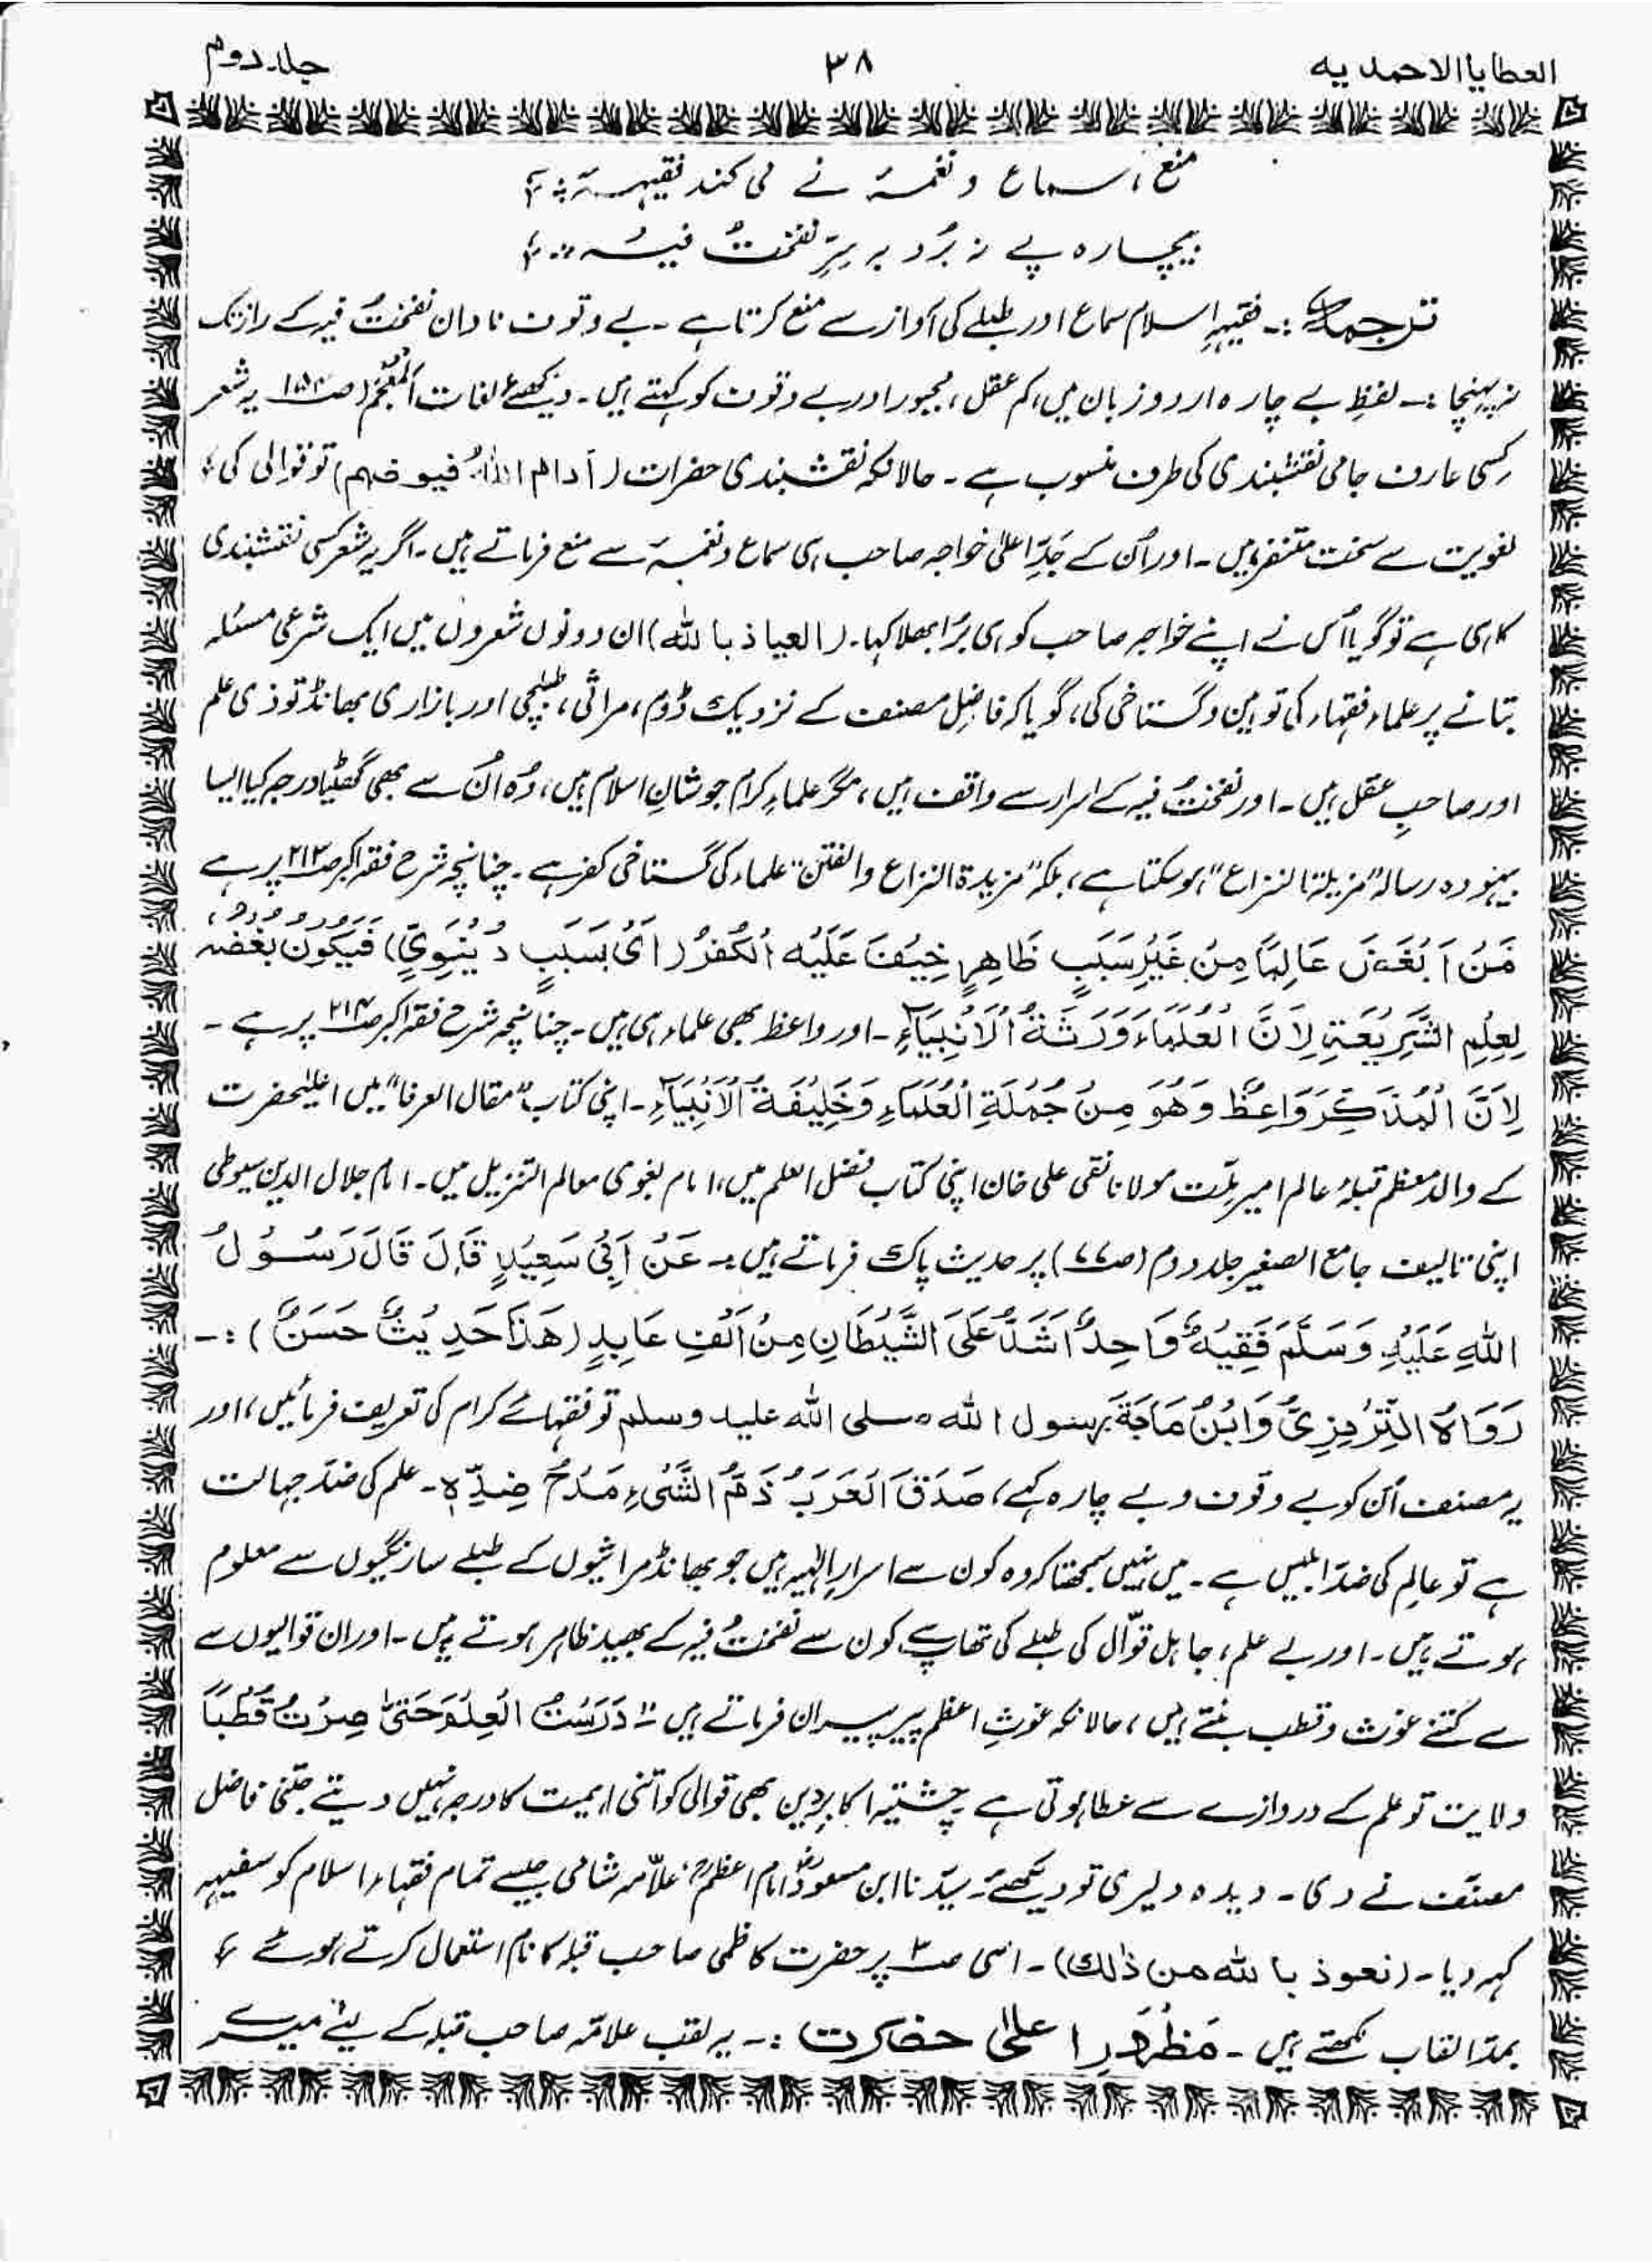 العطایا الاحمدیہ ۳۸ جلد دوم
منع سماع و نغمہ نے می کند فقیہہ
بیچارہ پے نہ بُرد بہ سِرِّ نفختُ فیہ
ترجمہ:۔ فقیہہِ اسلام سماع اور طبلے کی آواز سے منع کرتا ہے ۔ بے وقوف نادان نفختُ فیہ کے راز تک
نہ پہنچا :۔ لفظِ بے چارہ اردو زبان میں، کم عقل، مجبور اور بے وقوف کو کہتے ہیں ۔ دیکھئے لغات المُعجَم (صـ۱۵۴ یہ شعر
کسی عارف جامی نقشبندی کی طرف منسوب ہے ۔ حالانکہ نقشبندی حضرات (اَدام اللہُ فیوضہم) تو قوالی کی
لغویت سے سخت متنفر ہیں ۔ اور اُن کے جَدِّ اعلیٰ خواجہ صاحب ہی سماع و نغمہ سے منع فرماتے ہیں ۔ اگر یہ شعر کسی نقشبندی
کا ہی ہے تو گویا اُس نے اپنے خواجہ صاحب کو ہی بُرا بھلا کہا ۔ (العیاذ باللہ) ان دونوں شعروں میں ایک شرعی مسئلہ
بتانے پر علماء فقہاء کی توہین و گستاخی کی، گویا کہ فاضِل مصنف کے نزدیک ڈوم، مراثی، طبلچی اور بازاری بھانڈ تو ذی علم
اور صاحبِ عقل ہیں ۔ اور نفختُ فیہ کے اسرار سے واقف ہیں، مگر علماءِ کرام جو شانِ اسلام ہیں، وُہ اُن سے بھی گھٹیا درجہ کیا ایسا
بیہودہ رسالہ "مزیلۃ النزاع" ہو سکتا ہے، بلکہ "مزیدۃ النزاع والفتن" علماء کی گستاخی کفر ہے ۔ چنانچہ شرح فقہ اکبر صـ۲۱۳ پر ہے
مَنْ اَبْغَضَ عَالِمًا مِنْ غَیْرِ سَبَبٍ ظَاهِرٍ خِیْفَ عَلَیْهِ الْکُفْرُ (اَیْ بِسَبَبٍ دُنْیَوِیٍّ) فَیَکُوْنُ بُغْضُهٗ
لِعِلْمِ الشَّرِیْعَةِ لِاَنَّ الْعُلَمَاءَ وَرَثَةُ الْاَنْبِیَآءِ ۔ اور واعظ بھی علماء ہی ہیں ۔ چنانچہ شرح فقہ اکبر صـ۲۱۴ پر ہے ۔
لِاَنَّ الْمُذَکِّرَ وَاعِظٌ وَهُوَ مِنْ جُمْلَةِ الْعُلَمَاءِ وَخَلِیْفَةُ الْاَنْبِیَآءِ ۔ اپنی کتاب "مقال العرفا" میں اعلیٰحضرت
کے والد معظم قبلۂ عالم امیر ملّت مولانا نقی علی خان اپنی کتاب فضل العلم میں، امام بغوی معالم التنزیل میں ۔ امام جلال الدین سیوطی
اپنی تالیف جامع الصغیر جلد دوم (صـ۷۷) پر حدیث پاک فرماتے ہیں :۔ عَنْ اَبِیْ سَعِیْدٍ قَالَ قَالَ رَسُوْلُ
اللہِ عَلَیْهِ وَسَلَّمَ فَقِیْهٌ وَاحِدٌ اَشَدُّ عَلَی الشَّیْطَانِ مِنْ اَلْفِ عَابِدٍ (هَذَا حَدِیْثٌ حَسَنٌ) :۔
رَوَاهُ التِّرْمِذِیُّ وَابْنُ مَاجَةَ رسول اللہ صلی اللہ علیہ وسلم تو فقہائے کرام کی تعریف فرمائیں، اور
یہ مصنف اُن کو بے وقوف و بے چارہ کہے، صَدَقَ الْعَرَبُ ذَمُّ الشَّیْءِ مَدْحُ ضِدِّہٖ ۔ علم کی ضدّ جہالت
ہے تو عالِم کی ضدّ ابلیس ہے ۔ میں نہیں سمجھتا کہ وہ کون سے اسرارِ الٰہیہ ہیں جو بھانڈ مراثیوں کے طبلے سارنگیوں سے معلوم
ہوتے ہیں ۔ اور بے علم، جاہل قوّال کی طبلے کی تھاپ سے کون سے نفختُ فیہ کے بھید ظاہر ہوتے ہیں ۔ اور ان قوالیوں سے
سے کتنے غوث و قطب بنتے ہیں، حالانکہ غوثِ اعظم پیر پیران فرماتے ہیں دَرَسْتُ الْعِلْمَ حَتّٰی صِرْتُ قُطْبًا
ولایت تو علم کے دروازے سے عطا ہوتی ہے چشتیہ اکابرِ دین بھی قوالی کو اتنی اہمیت کا درجہ نہیں دیتے جتنی فاضل
مصنّف نے دی ۔ دیدہ دلیری تو دیکھئے سیّدنا ابن مسعودؓ امام اعظمؒ علاّمہ شامی جیسے تمام فقہاء اسلام کو سفیہہ
کہہ دیا ۔ (نعوذ باللہ من ذٰلک) ۔ اسی صـ۳ پر حضرت کاظمی صاحب قبلہ کا نام استعمال کرتے ہوئے
بمدّ القاب لکھتے ہیں ۔ مَظْهَرِ اعلیٰ حضرت :۔ یہ لقب علامّہ صاحب قبلہ کے لیئے میرے